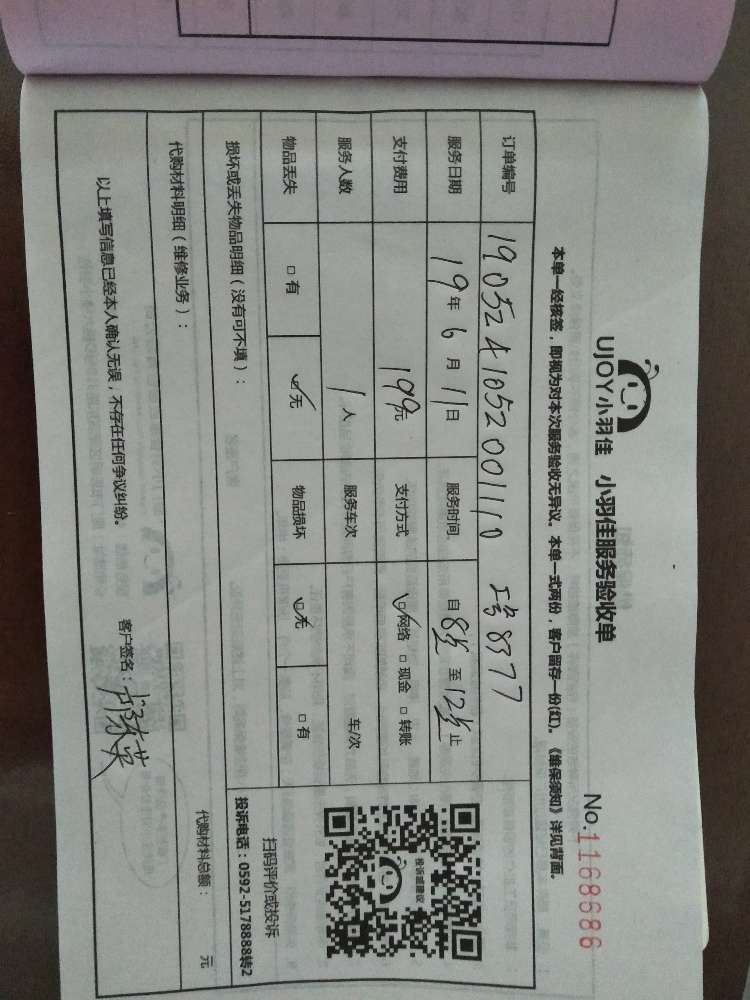 UJOY小羽佳 小羽佳服务验收单
No.1168686
本单一经核签，即视为对本次服务验收无异议。本单一式两份，客户留存一份(红)。《维保须知》详见背面。
订单编号 1905241052001110 工号8377
服务日期 19年6月11日 服务时间 自8点至12点止
支付费用 199元 支付方式 ☑网络 □现金 □转账
服务人数 1人 服务车次 车/次
物品丢失 □有 ☑无 物品损坏 ☑无 □有
投诉或建议
扫码评价或投诉
投诉电话：0592-5178888转2
损坏或丢失物品明细（没有可不填）：
代购材料明细（维修业务）： 代购材料总额： 元
以上填写信息已经本人确认无误，不存在任何争议纠纷。
客户签名：